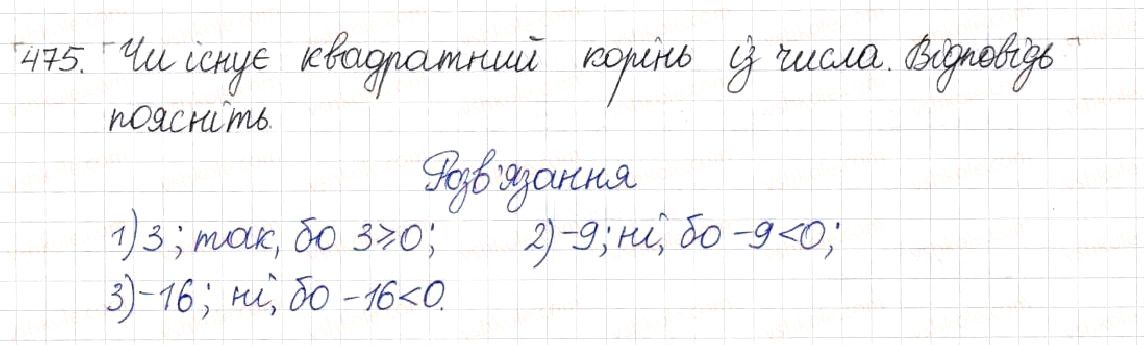 475. Чи існує квадратний корінь із числа. Відповідь
поясніть.
Розв'язання
1) 3; так, бо 3⩾0; 2) -9; ні, бо -9<0;
3) -16; ні, бо -16<0.